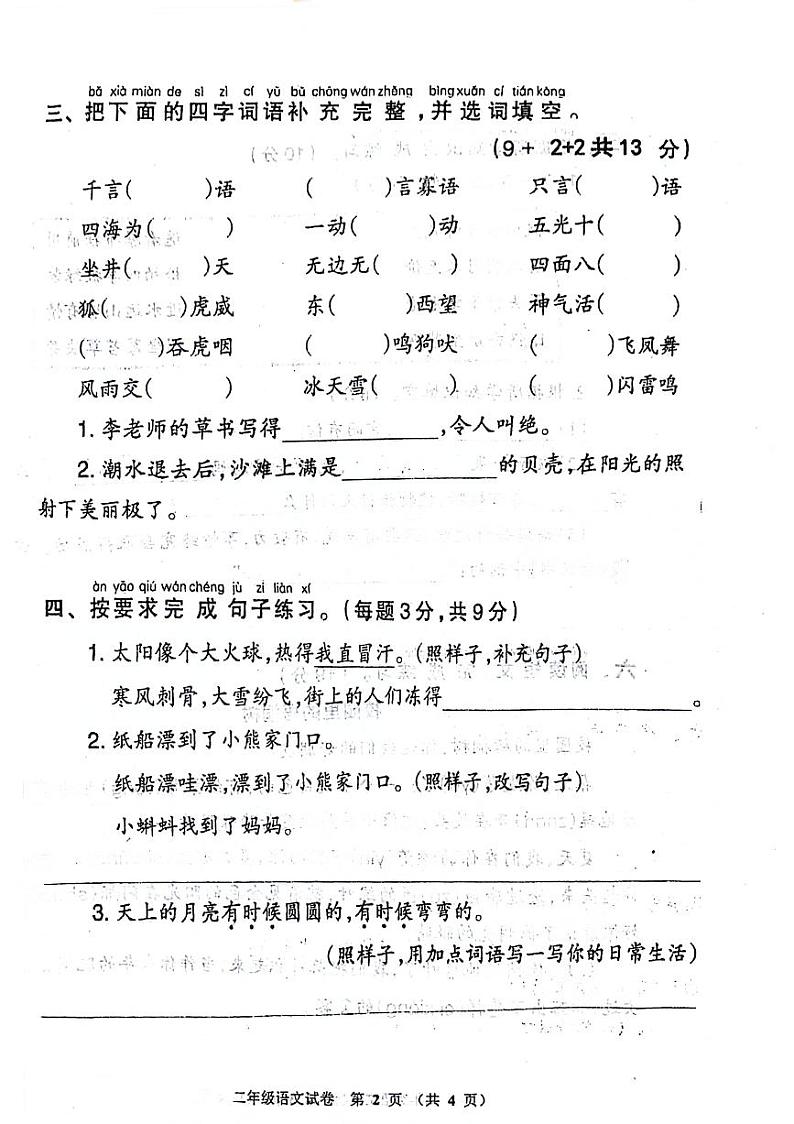 bǎ xià miàn de sì zì cí yǔ bǔ chōng wán zhěng bìng xuǎn cí tián kòng
三、把下面的四字词语补充完整,并选词填空。
(9+ 2+2共13 分)
千言( )语 ( )言寡语 只言( )语
四海为( ) 一动( )动 五光十( )
坐井( )天 无边无( ) 四面八( )
狐( )虎威 东( )西望 神气活( )
( )吞虎咽 ( )鸣狗吠 ( )飞凤舞
风雨交( ) 冰天雪( ) ( )闪雷鸣
1. 李老师的草书写得____________,令人叫绝。
2. 潮水退去后,沙滩上满是____________的贝壳,在阳光的照
射下美丽极了。
àn yāo qiú wán chéng jù zi liàn xí
四、按要求完成句子练习。(每题3分,共9分)
1. 太阳像个大火球,热得我直冒汗。(照样子,补充句子)
寒风刺骨,大雪纷飞,街上的人们冻得____________________。
2. 纸船漂到了小熊家门口。
纸船漂哇漂,漂到了小熊家门口。(照样子,改写句子)
小蝌蚪找到了妈妈。
3. 天上的月亮有时候圆圆的,有时候弯弯的。
(照样子,用加点词语写一写你的日常生活)
二年级语文试卷 第 2 页 (共 4 页)